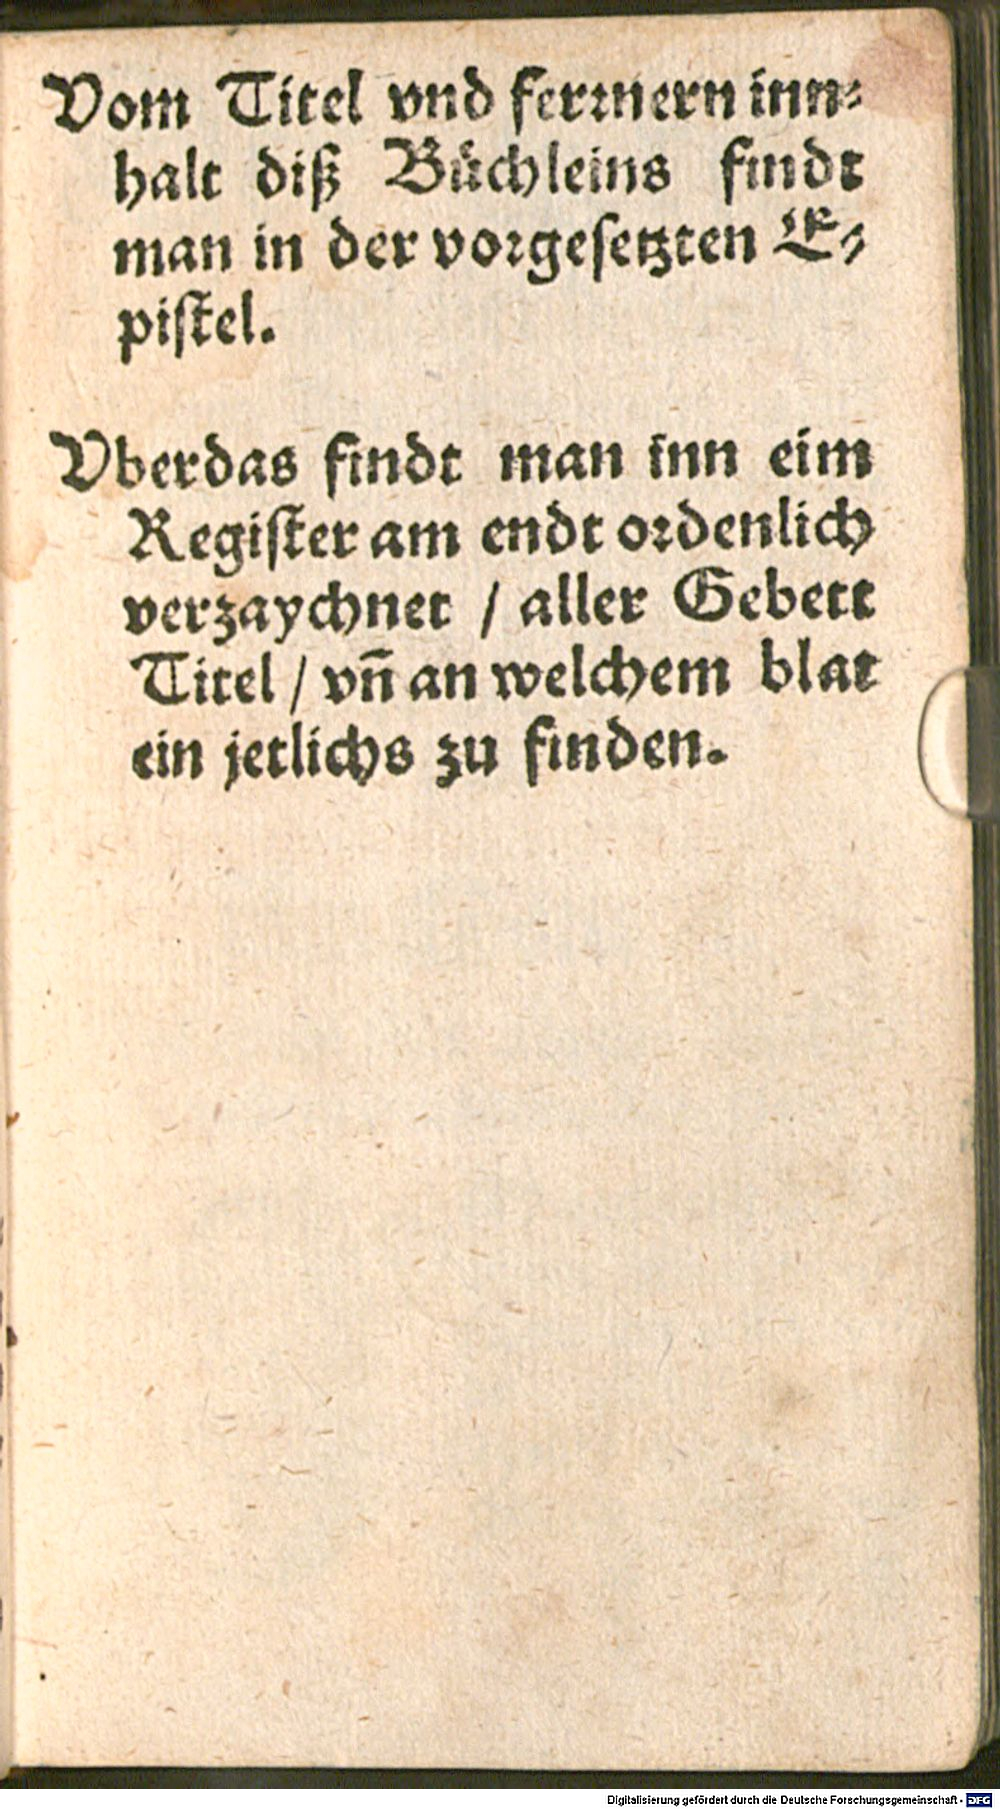 Vom Titel vnd fermern inn⸗
halt diß Büchleins findt
man in der vorgesetzten E⸗
pistel.
Vberdas findt man inn eim
Register am endt ordenlich
verzaychnet / aller Gebett
Titel / vn̄ an welchem blat
ein jetlichs zu finden.
Digitalisierung gefördert durch die Deutsche Forschungsgemeinschaft - DFG